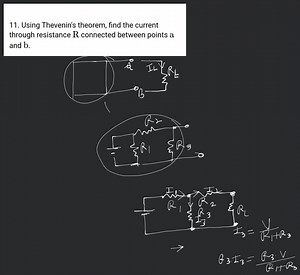 11. Using Thevenin's theorem, find the current
through resistance R connected between points a
and b.
a
IL
RL
B
R2
R1
R3
I1
I2
R1
R2
R3
I3
RL
I3 = V / R1+R3
R3 I3 = R3 V / R1+R3